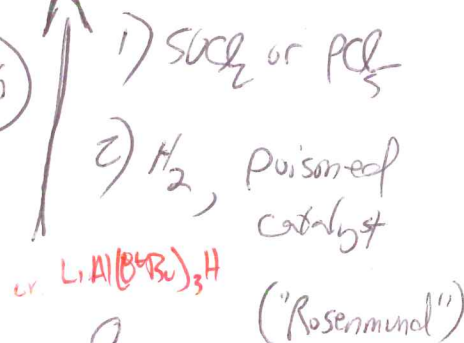 1) SOCl2 or PCl5
2) H2, poisoned
catalyst
or LiAl(OtBu)3H
("Rosenmund")